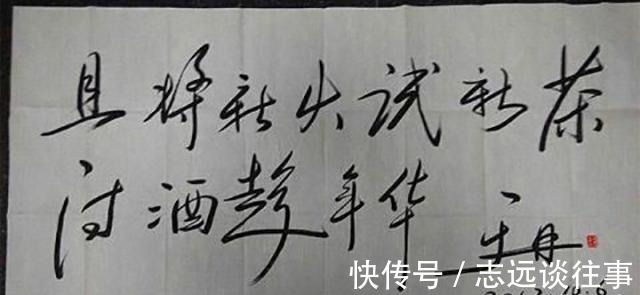 且将新火试新茶
诗酒趁年华
于丹
快传号 / 志远谈往事